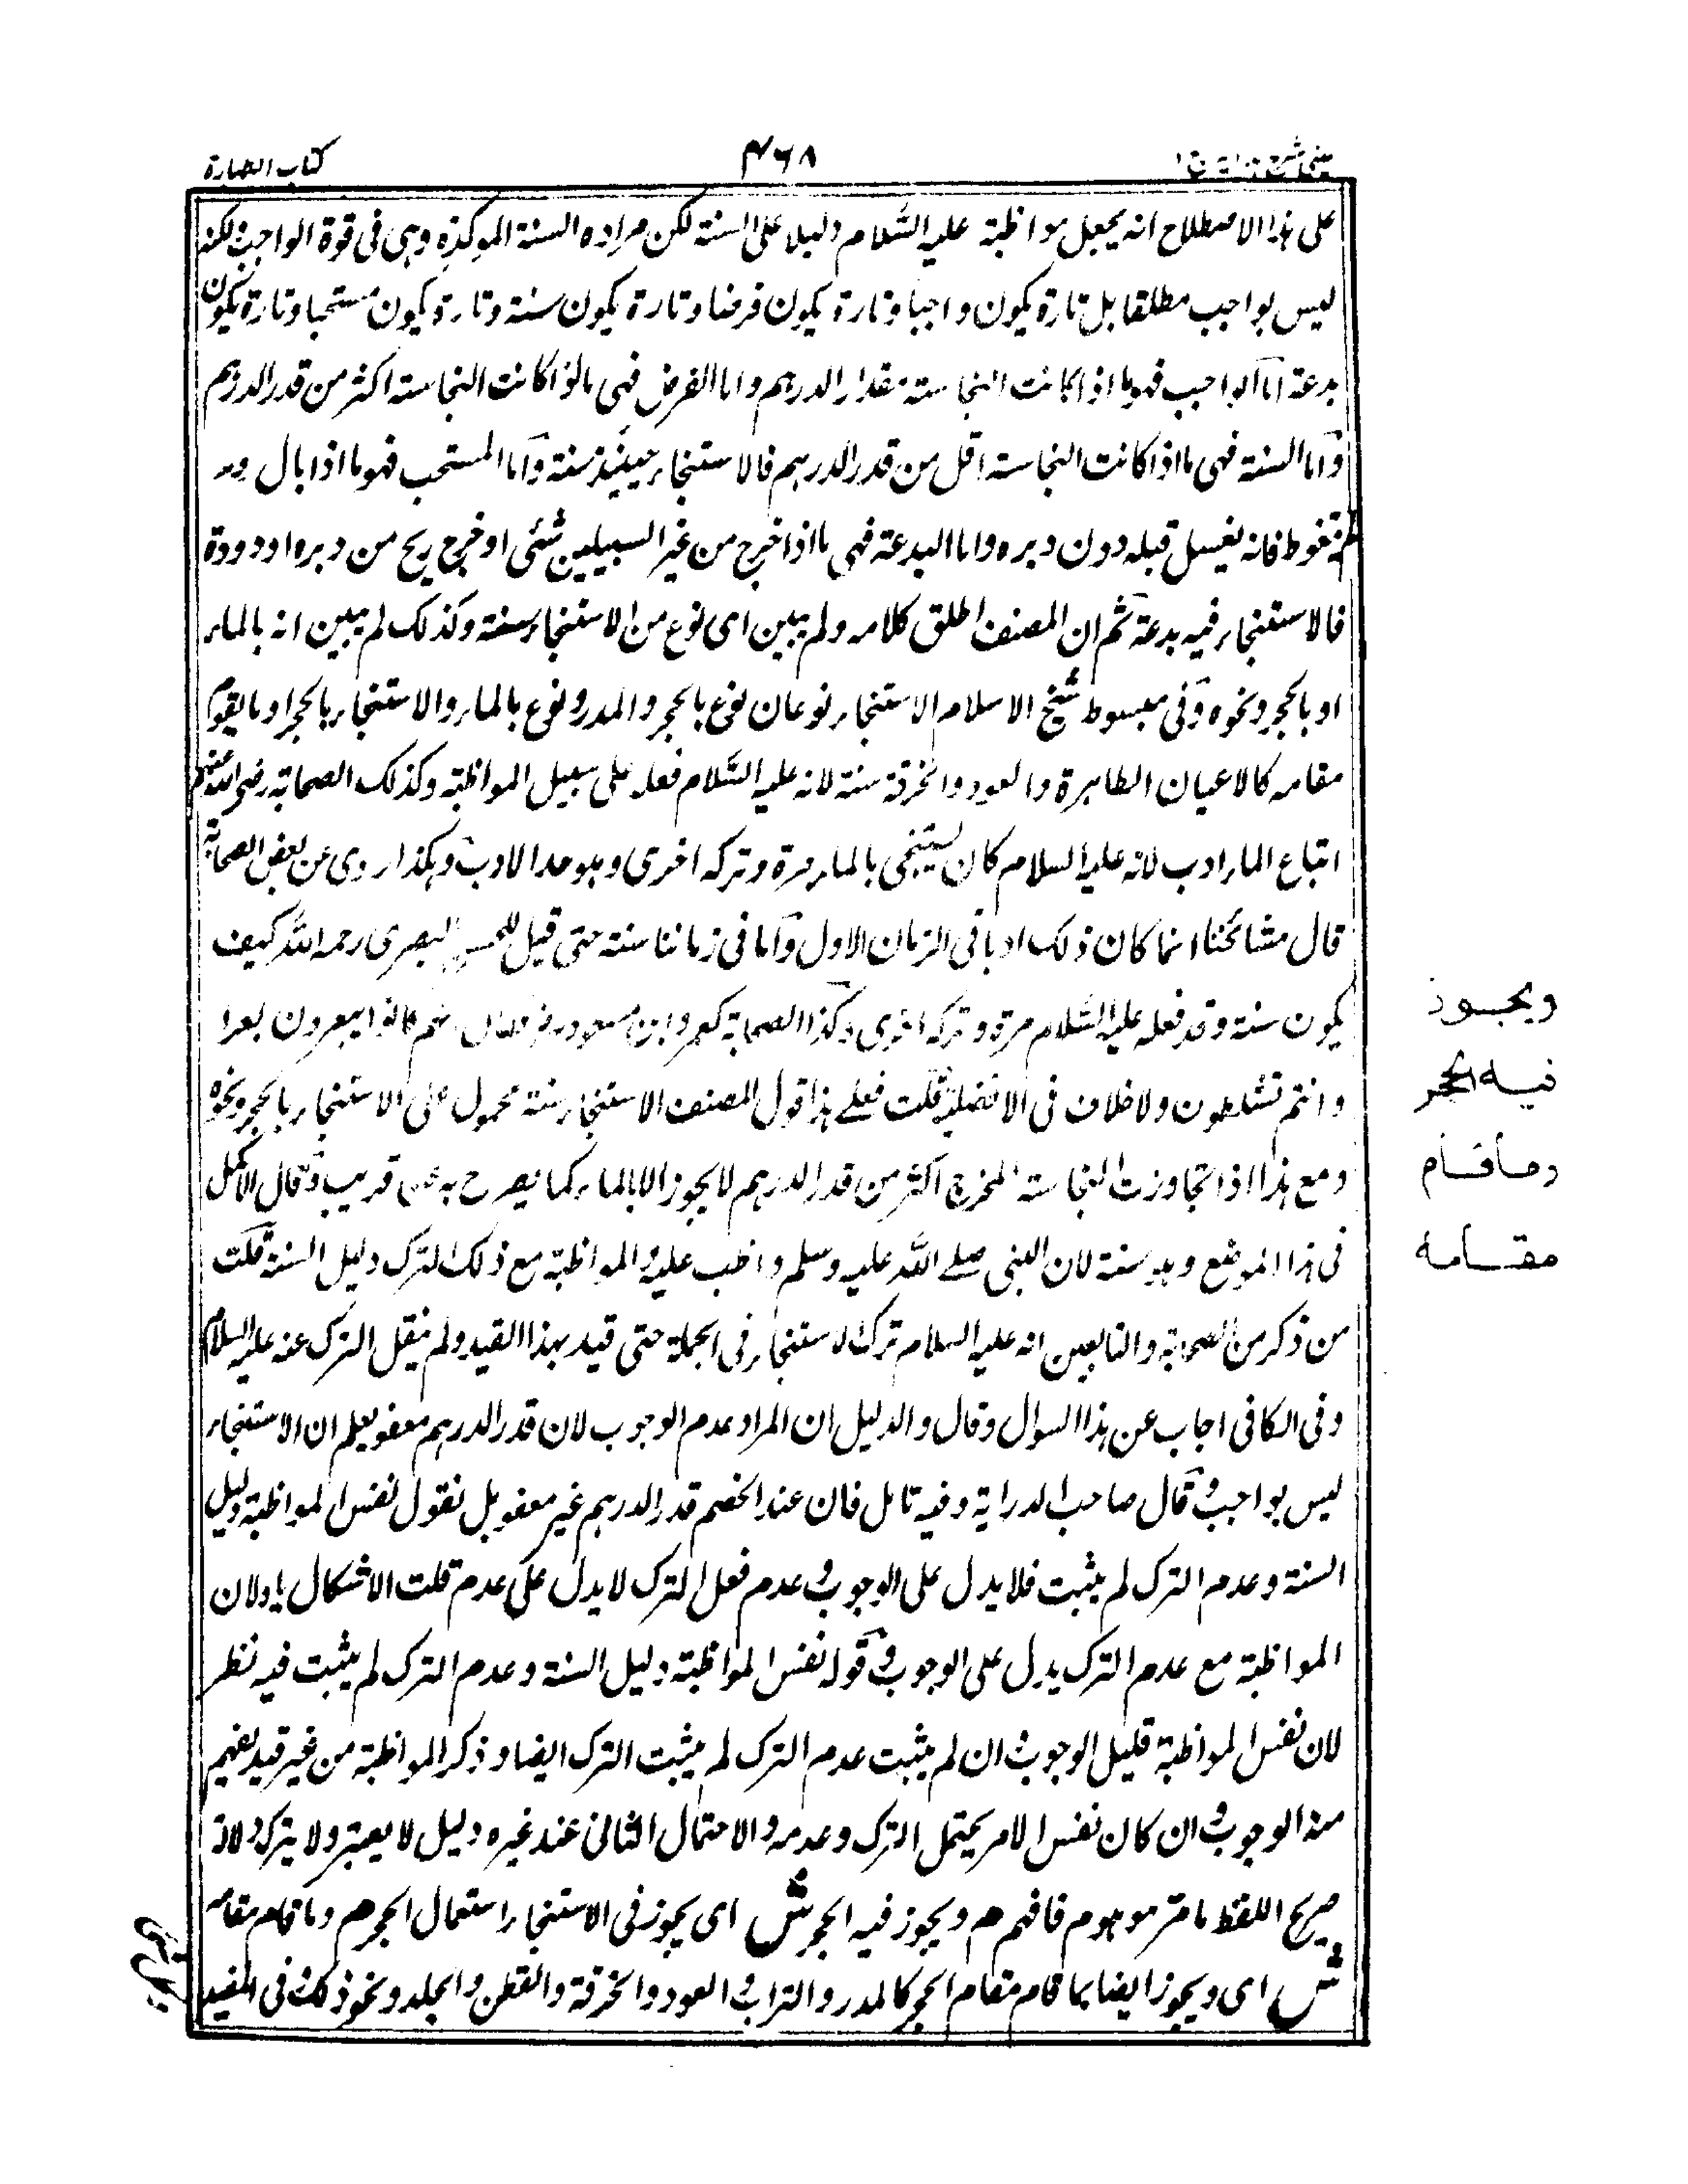 كتاب الطهارة
۴۶۸
عينى شرح هداية ج ا
على هذا الاصطلاح انه يجعل مواظبة عليه السّلام دليلا على السنة لكن مراده السنة الموكدة وهى فى قوة الواجب لكنه
ليس بواجب مطلقا بل تارة يكون واجبا وتارة يكون فرضا وتارة يكون سنة وتارة يكون مستحبا وتارة يكون
بدعة اما الواجب فهو ما اذا كانت النجاسة مقدار الدرهم واما الفرض فهى ما اذا كانت النجاسة اكثر من قدر الدرهم
واما السنة فهى ما اذا كانت النجاسة اقل من قدر الدرهم فالاستنجاء حينئذ سنة واما المستحب فهو ما اذا بال و
لم يتغوط فانه يغسل قبله دون دبره واما البدعة فهى ما اذا خرج من غير السبيلين شئى او خرج ريح من دبره او دودة
فالاستنجاء فيه بدعة ثم ان المصنف اطلق كلامه ولم يبين اى نوع من الاستنجاء سنة وكذلك لم يبين انه بالماء
او بالحجر ونحوه وفى مبسوط شيخ الاسلام الاستنجاء نوعان نوع بالحجر والمدر ونوع بالماء والاستنجاء بالحجر او ما يقوم
مقامه كالاعيان الطاهرة والعود والخرقة سنة لانه عليه السّلام فعله على سبيل المواظبة وكذلك الصحابة رضى الله عنهم
اتباع الماء ادب لانه عليه السلام كان يستنجى بالماء مرة وتركه اخرى وهو حد الادب وهكذا روى عن بعض الصحابة
قال مشائخنا انما كان ذلك ادبا فى الزمان الاول واما فى زماننا سنة حتى قيل للحسن البصرى رحمه الله كيف
يكون سنة وقد فعله عليه السّلام مرة وتركه اخرى وكذا الصحابة كعمر وابن مسعود رض فقال انهم كانوا يبعرون بعرا
وانتم تثلطون ولا خلاف فى الافضلية قلت فعلے هذا قول المصنف الاستنجاء سنة محمول على الاستنجاء بالحجر ونحوه
ومع هذا اذا تجاوزت النجاسة المخرج اكثر من قدر الدرهم لا يجوز الا بالماء كما يصرح به عن قريب وقال الاكمل
فى هذا الموضع وهو سنة لان النبى صلے الله عليه وسلم واظب عليه والمواظبة مع ذلك الترك دليل السنة قلت
من ذكر من الصحابة والتابعين انه عليه السلام ترك الاستنجاء فى الجملة حتى قيد بهذا القيد ولم ينقل الترك عنه عليه السلام
وفى الكافى اجاب عن هذا السوال وقال والدليل ان المراد عدم الوجوب لان قدر الدرهم معفو يعلم ان الاستنجاء
ليس بواجب وقال صاحب الدراية وفيه تامل فان عند الخصم قدر الدرهم غير معفو بل نقول نفس المواظبة دليل
السنة وعدم الترك لم يثبت فلا يدل على الوجوب وعدم فعل الترك لا يدل على عدم قلت الاشكال باد لان
المواظبة مع عدم الترك يدل على الوجوب وقوله نفس المواظبة دليل السنة وعدم الترك لم يثبت فيه نظر
لان نفس المواظبة دليل الوجوب وان لم يثبت عدم الترك لم يثبت الترك ايضا وذكر المواظبة من غير قيد يفهم
منه الوجوب وان كان نفس الامر يحتمل الترك وعدمه والاحتمال الثانى عند غيره دليل لا يعتبر ولا يترك دلالة
صريح اللفظ بامر موهوم فافهم م ويجوز فيه الحجر ش اى يجوز فى الاستنجاء استعمال الحجر م وما قام مقامه
ش اى ويجوز ايضا بما قام مقام الحجر كالمدر والتراب والعود والخرقة والقطن والجلد ونحو ذلك وفى المفيد
ويجـوز
فيه الحجر
وما قـام
مقـامه